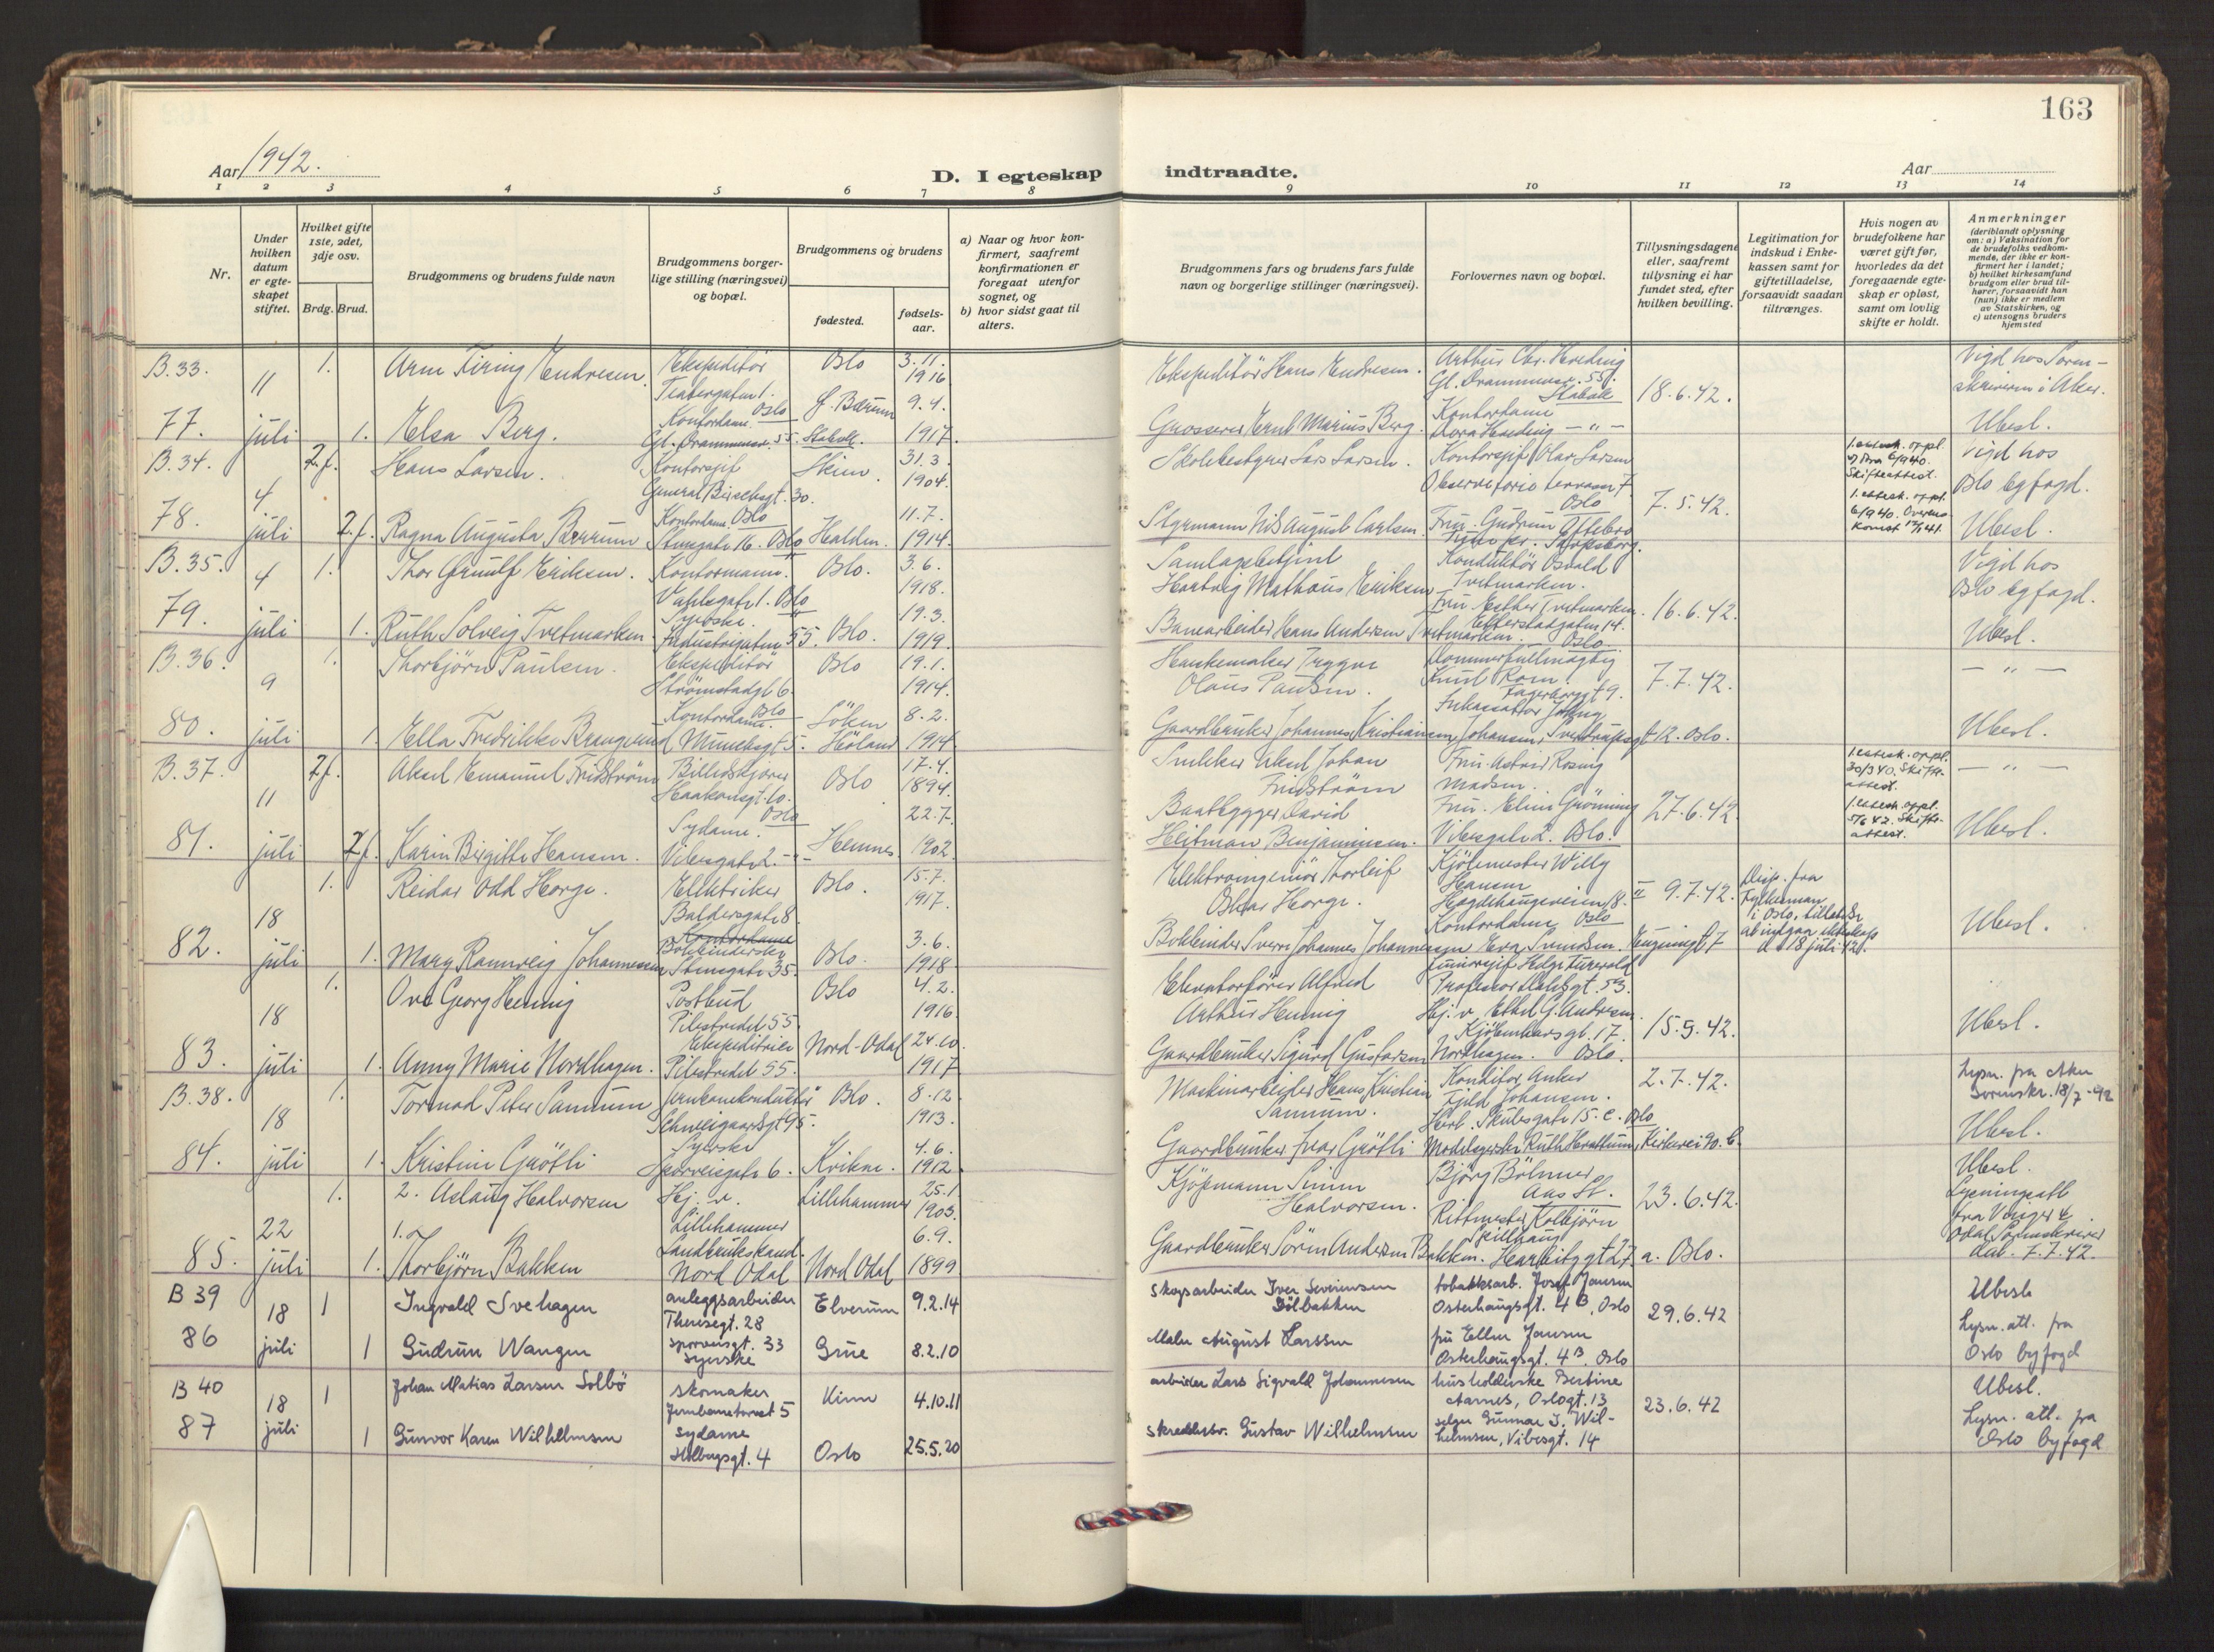 163
Aar 1942.
D. I egteskap indtraadte.
Aar
1 2 3 4 5 6 7 8 9 10 11 12 13 14
Nr.
Under hvilken datum er egteskapet stiftet.
Hvilket gifte 1ste, 2det, 3dje osv.
Brdg. Brud.
Brudgommens og brudens fulde navn
Brudgommens borgerlige stilling (næringsvei) og bopæl.
Brudgommens og brudens
fødested.
fødselsaar.
a) Naar og hvor konfirmert, saafremt konfirmationen er foregaat utenfor sognet, og
b) hvor sidst gaat til alters.
Brudgommens fars og brudens fars fulde navn og borgerlige stillinger (næringsvei).
Forlovernes navn og bopæl.
Tillysningsdagene eller, saafremt tillysning ei har fundet sted, efter hvilken bevilling.
Legitimation for indskud i Enkekassen samt for giftetilladelse, forsaavidt saadan tiltrænges.
Hvis nogen av brudefolkene har været gift før, hvorledes da det foregaaende egteskap er opløst, samt om lovlig skifte er holdt.
Anmerkninger
(deriblandt oplysning om: a) Vaksination for de brudefolks vedkommende, der ikke er konfirmert her i landet;
b) hvilket kirkesamfund brudgom eller brud tilhører, forsaavidt han (hun) ikke er medlem av Statskirken, og
c) utensogns bruders hjemsted
B. 33. 1. Arne Firing Endresen. Ekspeditör Teatergaten 1. Oslo Oslo 3.11. 1916 Ekspeditör Hans Endresen. Arthur Chr. Heeding Gl. Drammensv. 55. Stabekk 18.6.42. Vigd hos Sorenskriveren i Aker.
11 juli
77. 1. Elsa Berg. Kontordame. Gl. Drammensv. 55. Stabekk. Ö. Bærum 9.4. 1917. Grosserer Ernst Marius Berg. Kontordame Dora Heeding — " — Ubesl.
B. 34. 2. f. Hans Larsen. Kontorsjef General Birchsgt. 30. Oslo Heim. 31.3. 1904. Skolebestyrer Lars Larsen. Kontorsjef Olav Larsen Observatorie terrasse 7. Oslo 7.5.42. 1. ektesk. oppl. Skifteattest. Vigd hos Oslo byfogd.
4 juli
78. 2. f. Ragna Augusta Bærum Kontordame. Stensgate 16. Oslo Halden. 11.7. 1914. Styrmann Nils August Carlsen. Fru. Gudrun Sarpsborg. 1. ektesk. oppl. 6/1940. Ubesl.
B. 35. 1. Thor Ørnulf Eriksen. Kontormann. Vahlsgate 1. Oslo Oslo. 3.6. 1918. Samlagsbetjent Hartvig Mathæus Eriksen Konduktör Osvald Tvetmarken. 16.6.42. Vigd hos Oslo byfogd.
4 juli
79. 1. Ruth Solveig Tvetmarken. Syerske. Industrigaten 55. Oslo. 19.3. 1919. Banearbeider Hans Andersen Tvetmarken. Fru Esther Tvetmarken. Etterstadgaten 14. Oslo. Ubesl.
B. 36. 1. Thorbjörn Paulsen. Ekspeditör Strömstadgt 6. Oslo Oslo 19.1. 1914. Hanskemaker Trygve Olaus Paulsen. Dommerfullmägtig Knut Rom. Fagerborggt 9. 7.7.42. — " —
9 juli
80. 1. Ella Fredrikke Brangerud Kontordame. Munchsgt 5. Löken Höland 8.2. 1914 Gaardbruker Johannes Kristiansen Johansen, Sverdrupsgt 12. Oslo. Ubesl.
B. 37. 2 f. Aksel Emanuel Fridström Billedskjærer Haakonsgt. 10. Oslo Oslo 17.4. 1894. Snekker Aksel Johan Fridström Fru. Astrid Rosing Madsen. 27.6.42. 1. ektesk. oppl. 30/3 40. Skifteattest. — " —
11 juli
81. 2 f. Karin Birgitte Hansen. Sydame. Vibesgate 2. — " — Hemnes 22.7. 1902. Baatbygger David Heitman Benjaminsen. Fru. Elin Grönning Vibesgate 2. Oslo. 1. ektesk. oppl. 5/6 42. Skifteattest. Ubesl.
1. Reidar Odd Horge. Elektriker Baldersgate 8. Oslo. 15.7. 1917. Elektroingeniör Thorleif Oskar Horge. Kjölemester Willy Hansen Hegdehaugsveien 18. II Oslo 9.7.42. Disp. fra Fylkesmann i Oslo, tillatelse at inngaa ekteskap d. 18 juli 42. Ubesl.
18 juli
82. 1. Mary Rannveig Johannessen Kontordame Bokbinderske Stensgate 35. Oslo. 3.6. 1918 Bokbinder Sverre Johannes Johannessen Kontordame Eva Svendsen. Eugeniegt. 7
1. Ove Georg Hennig Postbud Pilestredet 55. Oslo 4.2. 1916. Elevatorförer Alfred Arthur Hennig Juniorsjef Helge Furevold Professor Dahlsgt. 53. 15.5.42. Ubesl.
18 juli
83. 1. Anny Marie Nordhagen. Ekspeditrise Pilestredet 55. Nord-Odal 24.10. 1917 Gaardbruker Sigurd Gustavsen Nordhagen. Hj. v. Ethel G. Andresen. Kjöbenhavngt. 17. Oslo.
B. 38. 1. Tormod Peter Sannum Jernbanekonduktör Schweigaardsgt 95. Oslo. 8.12. 1913. Maskinarbeider Hans Kristian Sannum. Konditor Anker Fjeld Johansen. Hert. Skulesgate 15. C. Oslo 2.7.42. Lysn. fra Aker Sorenskr. 18/7-42
18 juli
84. 1. Kristine Grötli Syerske Sporveisgate 6. Kvikne. 4.6. 1912 Gaardbruker Ivar Grötli Modelsyerske Ruth Herstrum, Kirkevei 90. C. Ubesl.
1. 2. Aslaug Halvorsen Hj. v. Lillehammer Lillehammer 25.1. 1903. Kjöpmann Simen Halvorsen. Björg Böhmer Aas St. 23.6.42. Ubesl. Lysningsatt. fra Vinger & Odal Sorenskriver dat. 7.7.42.
22 juli
85. 1. 1. Thorbjörn Bakken Landbrukskand. Nord Odal Nord Odal 6.9. 1899 Gaardbruker Sören Andersen Bakken. Rittmester Kolbjörn Skillhaug Harbitzgt 27. a. Oslo.
B 39 18 1 Ingvald Svehagen anleggsarbeider Theresegt. 28 Elverum 9.2.14 skogsarbeider Iver Severinsen Dölbakken tobakksarb. Josef Jansen Osterhaugsgt. 4 B, Oslo 29.6.42 Ubesl.
86 juli 1 Gudrun Wangen sporveisgt. 33 syerske Grue 8.2.10 Maler August Larssen fru Ellen Jansen Osterhaugsgt. 4 B. Oslo Lysn. att. fra Oslo byfogd
B 40 18 1 Johan Matias Larsen Solbö skomaker Jernbanetorvet 5 Kinn 4.10.11 arbeider Lars Sigvald Johannesen husholderske Bertine Aarnes, Oslogt. 13 23.6.42 Ubesl.
87 juli 1 Gunvor Karen Wilhelmsen sydame Holbergsgt. 4 Oslo 25.5.20 skreddersv. Gustav Wilhelmsen selger Gunnar J. Wilhelmsen, Vibesgt. 14 Lysn. att. fra Oslo byfogd